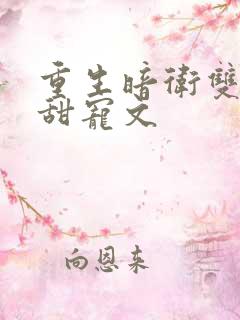 重生暗衛雙
甜寵文
向恩来